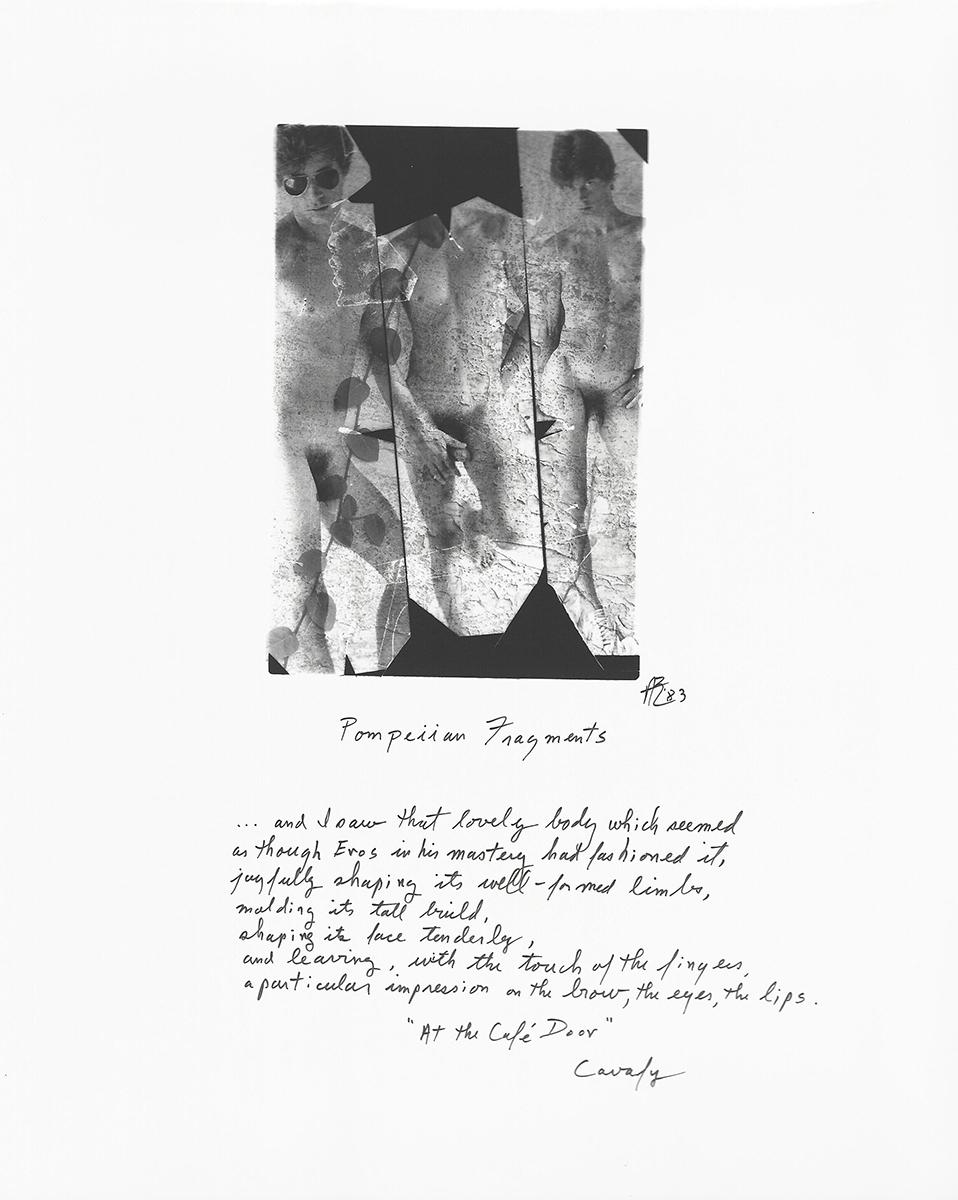 '83
Pompeiian Fragments
... and I saw that lovely body which seemed
as though Eros in his mastery had fashioned it,
joyfully shaping its well-formed limbs,
molding its tall build,
shaping its face tenderly,
and leaving, with the touch of the fingers,
a particular impression on the brow, the eyes, the lips.
"At the Café Door"
Cavafy